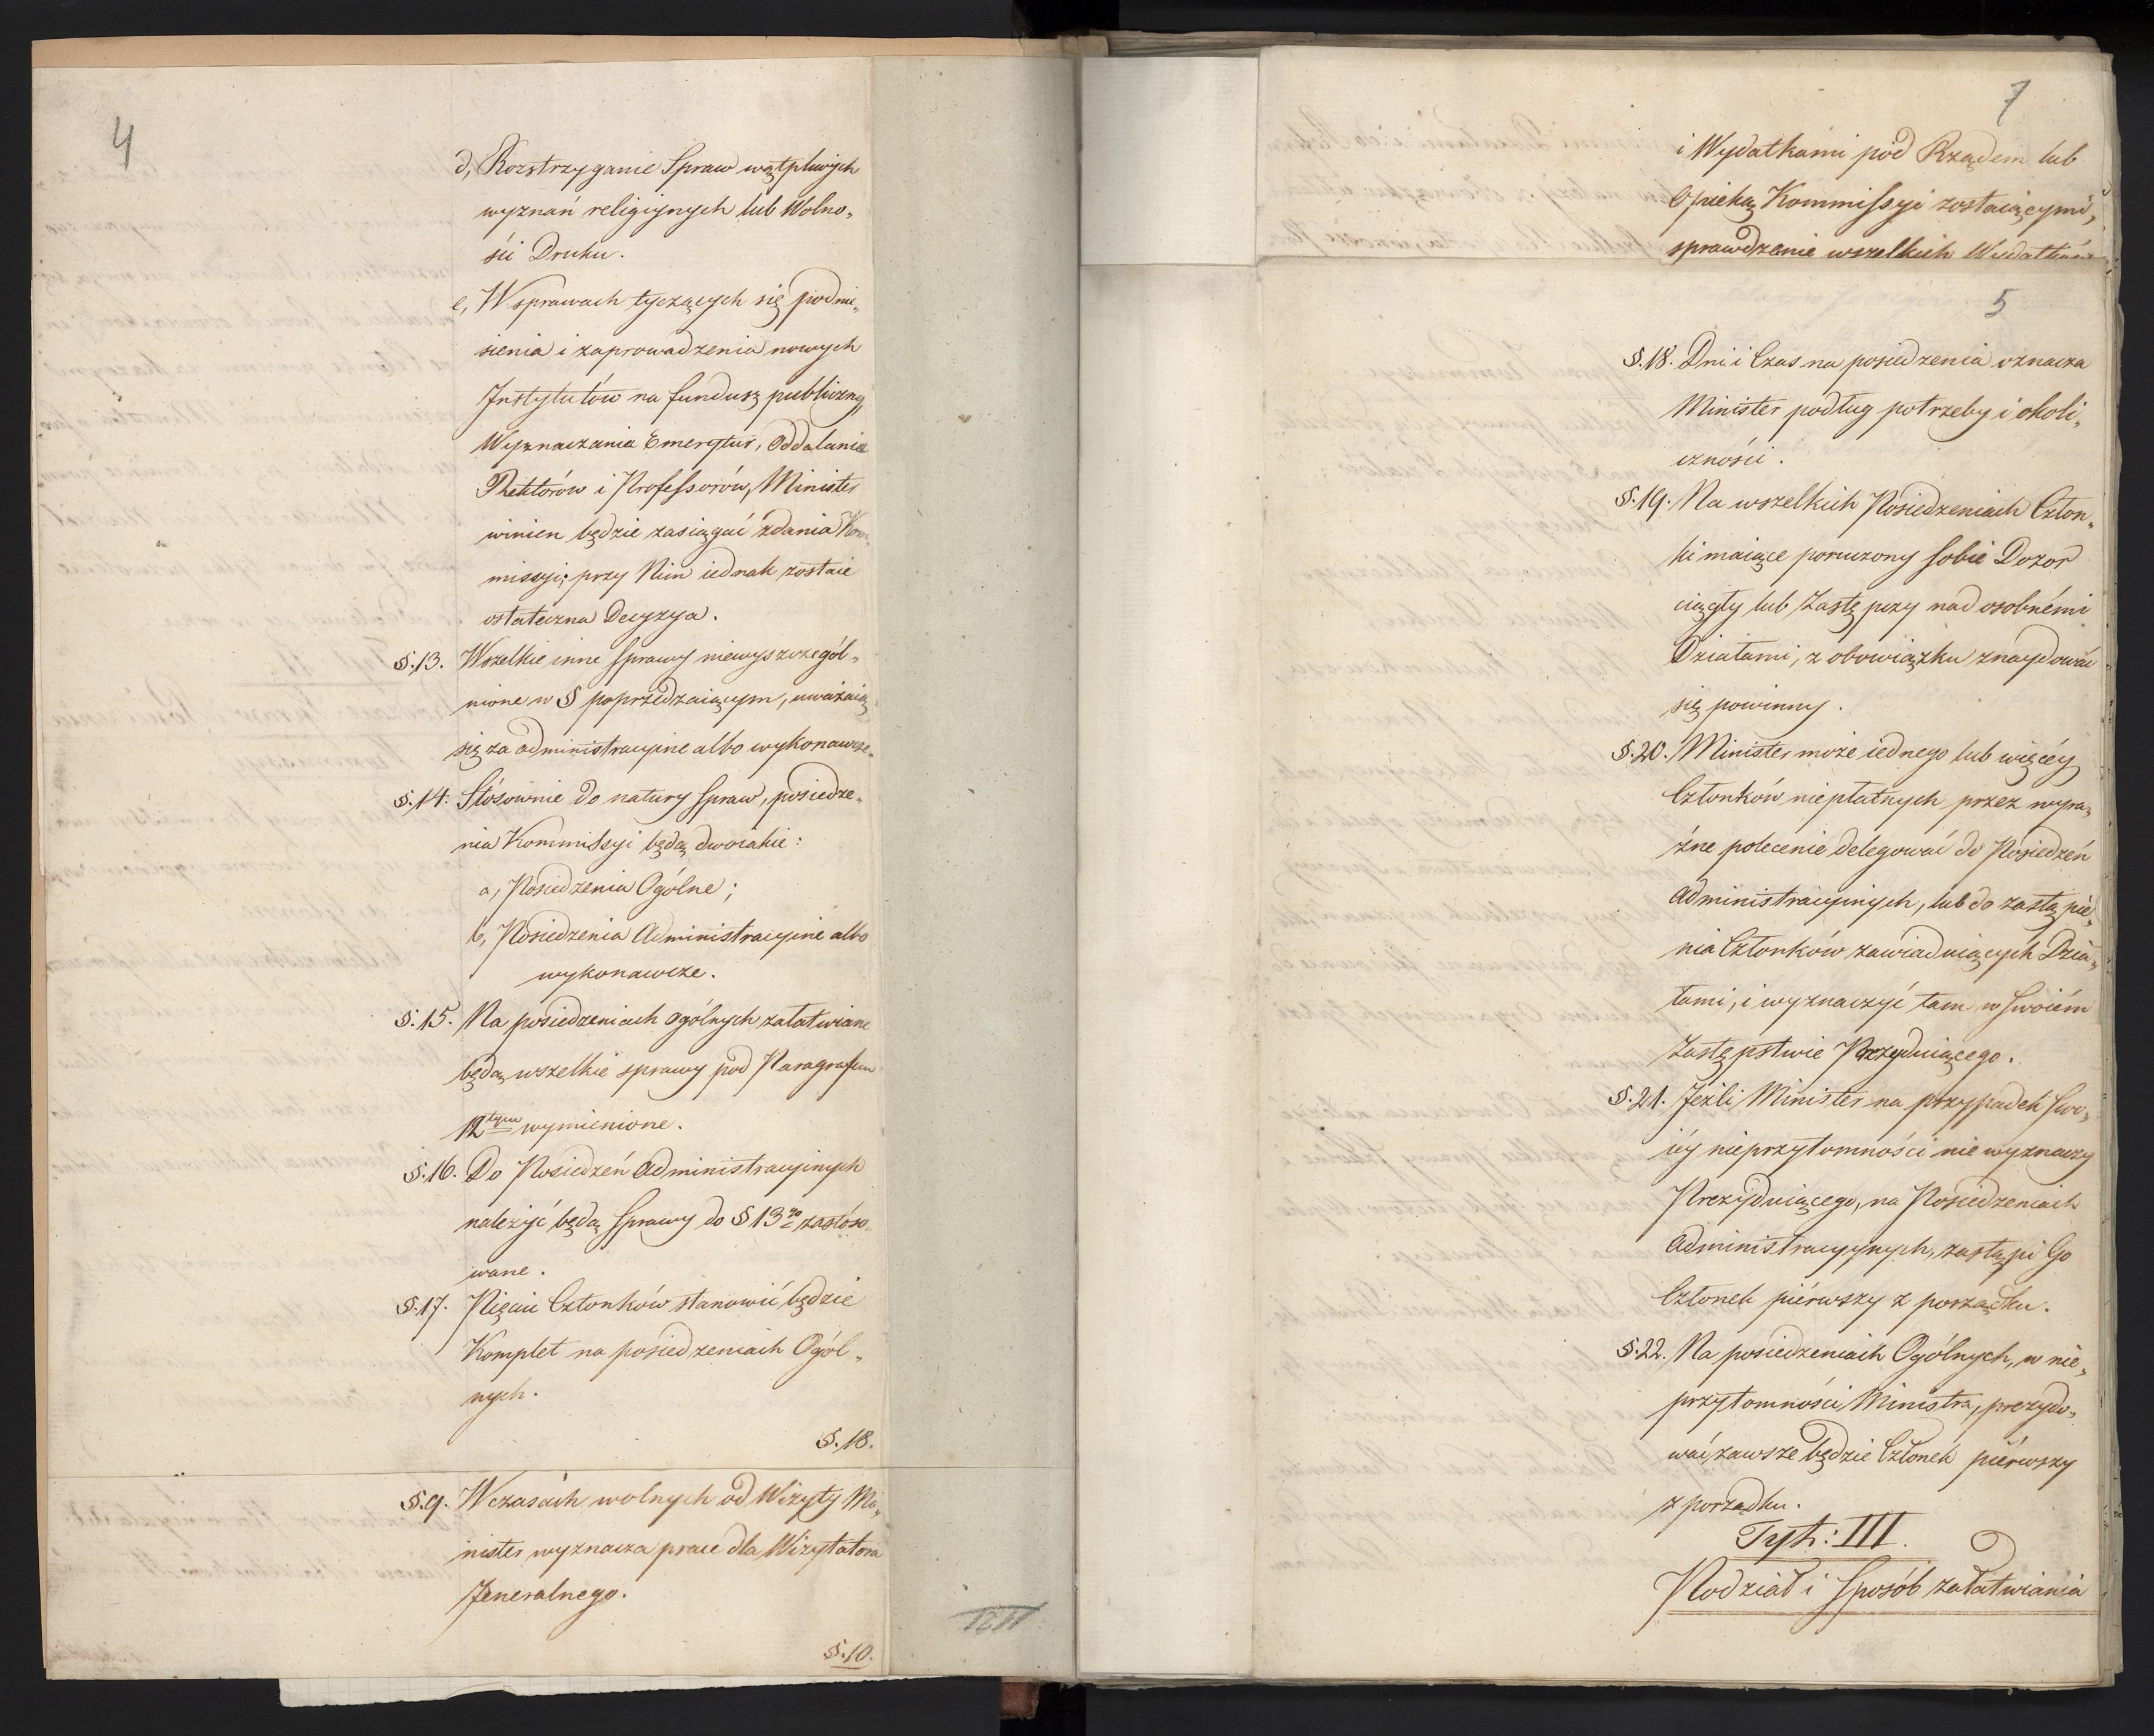 4
d, Rozstrzyganie Spraw wątpliwych
wyznań religiynych lub Wolno„
ści Druku.
e, W sprawach tyczących się podnie„
sienia i zaprowadzenia nowych
Instytutów na fundusz publiczny,
Wyznaczania Emerytur, Oddalania
Rektorów i Professorów, Minister
winien będzie zasiągać zdania Kom„
missyi; przy Nim iednak zostaie
ostateczna Decyzya.
§.13. Wszelkie inne sprawy niewyszczegól„
nione w § poprzedzaiącym, uważaią
się za administracyine albo wykonawcze.
§.14. Stósownie do natury spraw, posiedze„
nia Kommissyi będą dwoiakie:
a, Posiedzenia Ogólne;
b, Posiedzenia Administracyine albo
wykonawcze.
§.15. Na posiedzeniach ogólnych załatwiane
będą wszelkie sprawy pod Paragrafem
12tym wymienione.
§.16. Do Posiedzeń Administracyinych
należyć będą sprawy do § 13go zastóso„
wane.
§.17. Pięciu Członków stanowić będzie
Komplet na posiedzeniach Ogól„
nych.
§.18.
§.9. W czasach wolnych od Wizyty Mi„
nister wyznacza prace dla Wizytatora
Jeneralnego.
§.10.
7
i Wydatkami pod Rządem lub
Opieką Kommissyi zostaiącymi,
sprawdzanie wszelkich Wydatków
5
§.18. Dni i Czas na posiedzenia oznacza
Minister podług potrzeby i okoli„
czności.
§.19. Na wszelkich Posiedzeniach Człon„
ki maiące poruczony sobie Dozór
ciągły lub Zastępczy nad osobnémi
Działami, z obowiązku znaydować
się powinny.
§.20. Minister może iednego lub więcéy
Członków niepłatnych przez wyra„
źne polecenie delegować do Posiedzeń
Administracyinych, lub do zastąpie„
nia Członków zawiaduiących Dzia„
łami, i wyznaczyć tam w swoiém
Zastępstwie Prezyduiącego.
§.21. Jeżli Minister na przypadek swo„
iéy nieprzytomności nie wyznaczy
Prezyduiącego, na Posiedzeniach
Administracyynych, zastąpi Go
Członek piérwszy z porządku.
§.22. Na posiedzeniach Ogólnych, w nie„
przytomności Ministra, prezydo„
wać zawsze będzie Członek piérwszy
z porządku.
Tyt: III.
Podział i Sposób załatwiania